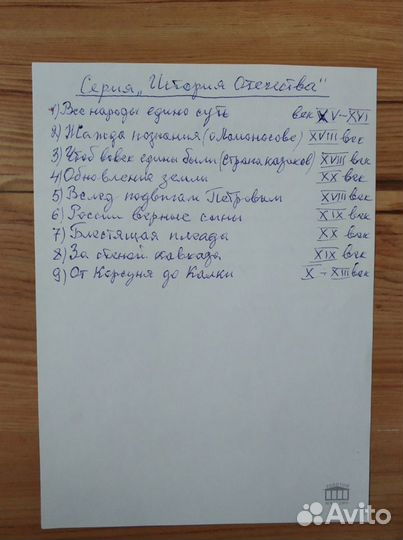 Серия „История Отечества"
1) Все народы едино суть век XV-XVI
2) Жажда познания (о Ломоносове) XVIII век
3) Чтоб вовек едины были (страна казаков) XVIII век
4) Обновление земли XX век
5) Вслед подвигам Петровым XVIII век
6) России верные сыны XIX век
7) Блестящая плеяда XX век
8) За стеной кавказа XIX век
9) От Корсуня до Калки X - XIII век
Avito